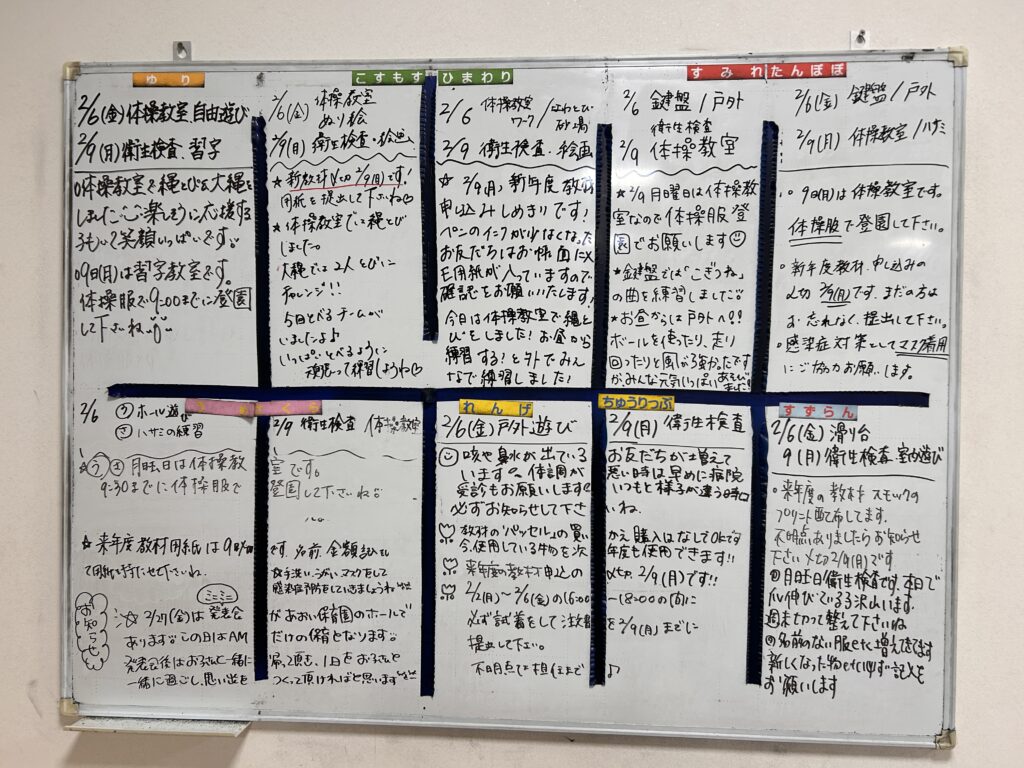 ゆり
2/6(金)体操教室、自由遊び
2/9(月)衛生検査、習字
○体操教室で縄とび&大縄を
しました◡̈楽しそうに応援する
子もいて笑顔いっぱいです
○9日(月)は習字教室です。
体操服で9:00までに登園
して下さいね
こすもす
2/6(金) 体操教室
ぬり絵
2/9(月) 衛生検査・絵画
★新教材〆切 2/9(月)です!
用紙を提出して下さいね♡
★体操教室では縄とび
しました。
大縄では2人とびに
チャレンジ!!
5回とべるチームが
いましたよ♪
いっぱいとべるように
頑張って練習しようね♡
ひまわり
2/6 体操教室/なわとび
ワーク/砂場
2/9 衛生検査・絵画
★2/9(月)、新年度教材
申し込みしめきりです!
ペンのインクが少なくなった
お友だちはお帳面にメ
モ用紙が入っていますので
確認をお願いいたします!
今日は体操教室で縄と
びをしました!お昼から
練習する!と外でみん
なで練習しました!
すみれ
2/6 鍵盤/戸外
衛生検査
2/9 体操教室
★2/9月曜日は体操教
室なので体操服登
園でお願いします☺
★鍵盤では「こぎつね」
の曲を練習しました
★お昼からは戸外へ!!
ボールを使ったり、走り
回ったりと風が強かったです
が、みんな元気いっぱいあそび
ました!!
たんぽぽ
2/6(金) 鍵盤/戸外
2/9(月) 体操教室/ハサミ
・9日(月)は体操教室です。
体操服で登園して下さい。
・新年度教材申し込みの
〆切2/9(月)です。まだの方は
お忘れなく、提出して下さい。
・感染症対策としてマスク着用
にご協力お願いします。
2/6 ㋒ホール遊び
㋚ハサミの練習
2/9 衛生検査 体操教室
☆㋒㋚月曜日は体操教室です。
9:30までに体操服で登園して下さいね
☆来年度教材用紙は9日
です。名前、金額記入し
て用紙を持たせて下さいね。
☆手洗い、うがい、マスクをして
感染症予防をしていきましょうね
お知らせ
ミニミニ
☆2/27(金)は発表会があおい保育園のホールで
あります。この日はAMだけの保育となります
発表会後はお子さんと一緒に帰って頂き、1日をお子さんと
一緒に過ごし、思い出をつくって頂ければと思います
れんげ
ちゅうりっぷ
2/6(金)戸外遊び
2/9(月)衛生検査
☺咳や鼻水が出ているお友だちが増えて
います。体調が悪い時は早めに病院
受診もお願いします。いつもと様子が違う時は
必ずお知らせして下さいね。
教材の「パッセル」の買いかえ購入はなしでOKです
今、使用している物を次年度も使用できます!!
来年度の教材申込の〆切、2/9(月)です!!
2/2(月)~2/6(金)の16:00~18:00の間に
必ず試着をして注文書を2/9(月)までに
提出して下さい。
不明点は担任まで♪
すずらん
2/6(金)滑り台
9(月)衛生検査、室内遊び
・来年度の教材&スモックの
プリント配布してます。
不明点ありましたらお知らせ
下さい 〆切2/9(月)です
月曜日衛生検査です。本日で
爪が伸びている子沢山います。
週末で切って整えて下さいね
名前のない服などが増えてきてます
新しくなった物などには必ず記入を
お願いします